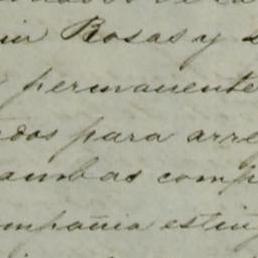 Rosas y
permanente
dos para arre
ambas comp
mpañia esting